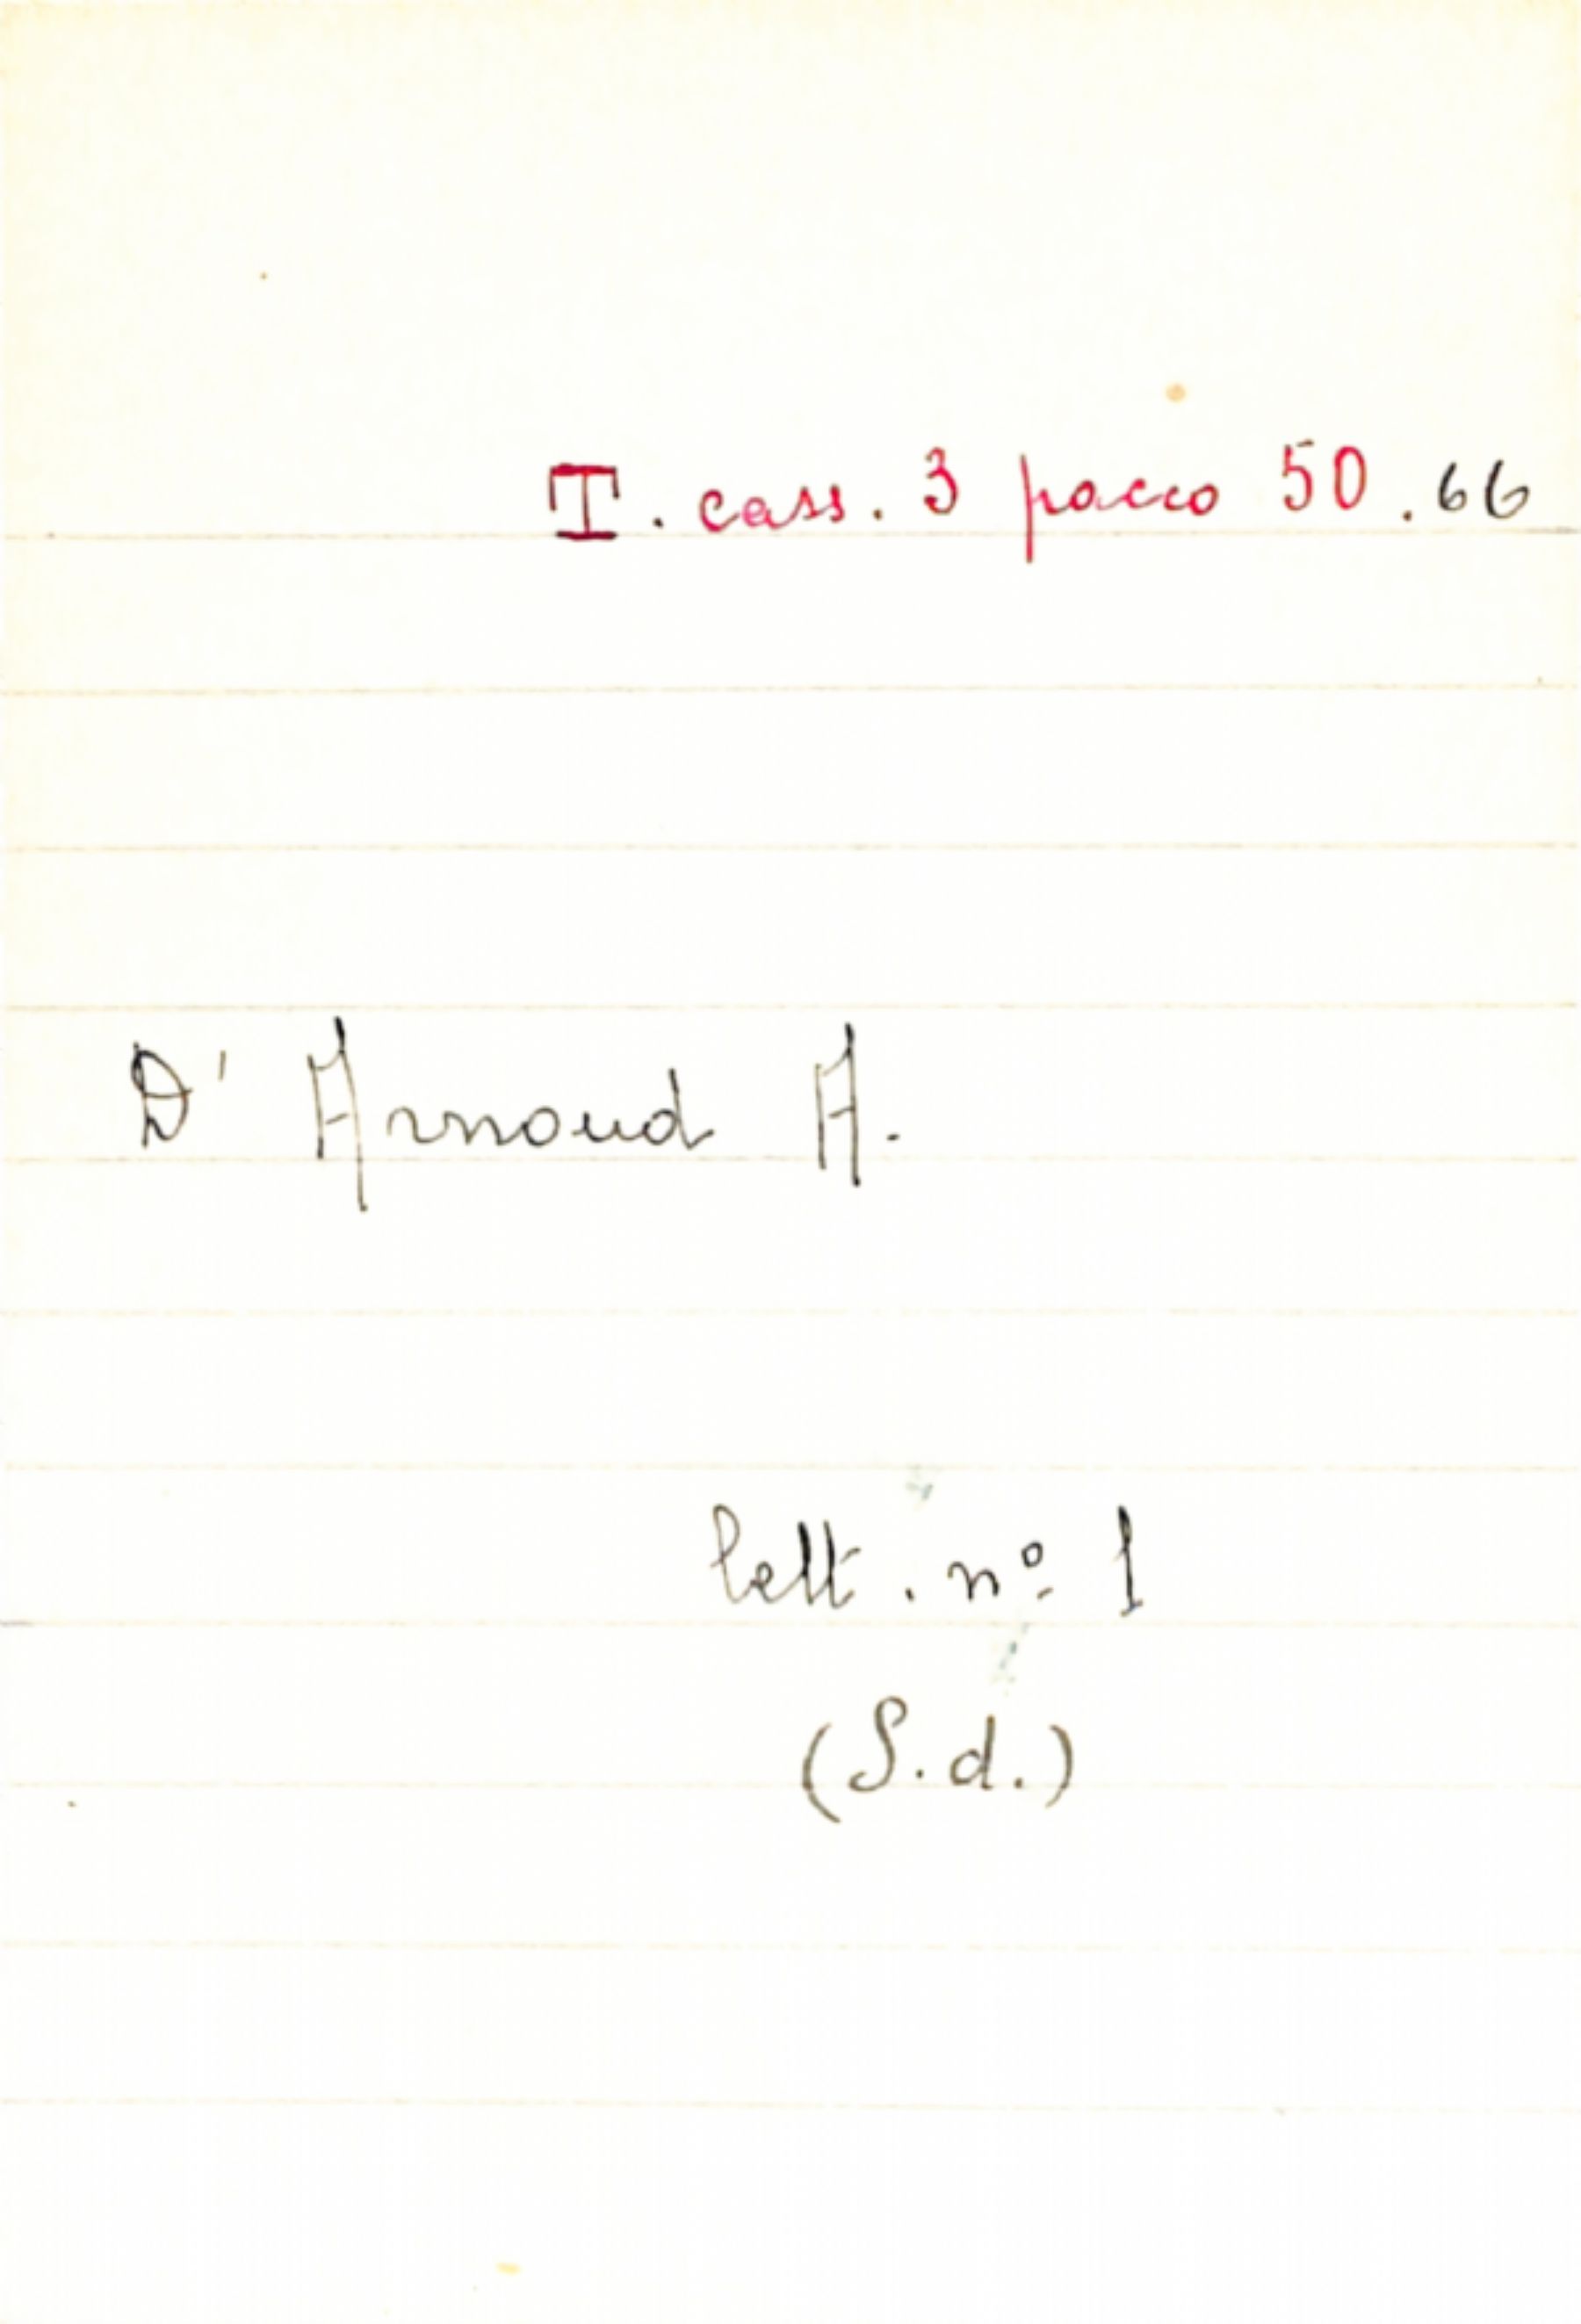 T. cass. 3 pacco 50.66
D' Arnoud A.
lett. nº 1
(S.d.)